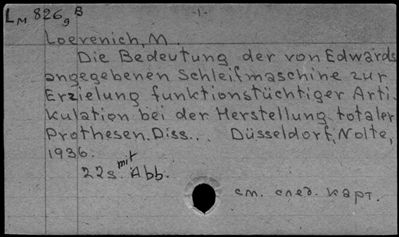 Lм 826g B -1-
Loevenich, M.
Die Bedeutung der von Edwards
angegebenen Schleifmaschine zur
Erzielung funktionstüchtiger Arti-
kulation bei der Herstellung totaler
Prothesen. Diss... Düsseldorf, Nolte,
1936.
22s. mit Abb.
см. след. карт.